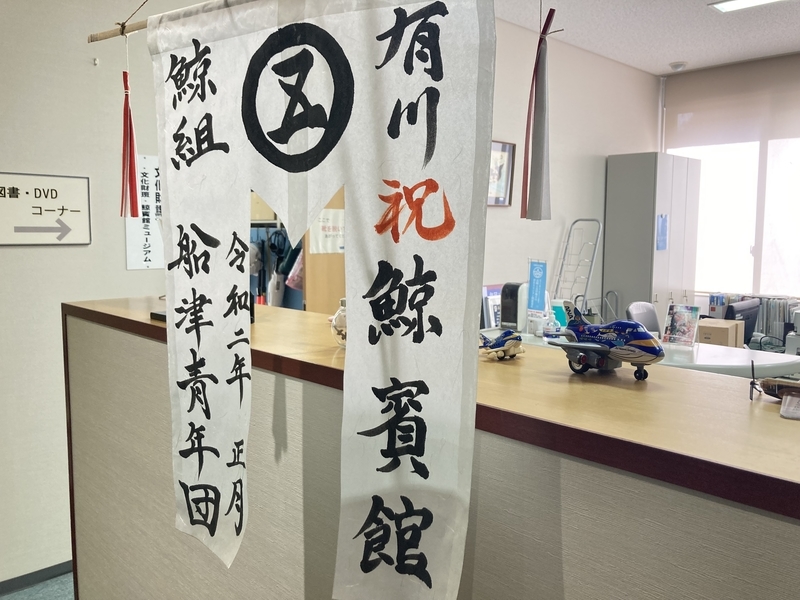 有川
祝
鯨賓館
五
令和二年 正月
鯨組
船津青年団
図書・DVD
コーナー
文化財団・鯨賓館ミュージアム